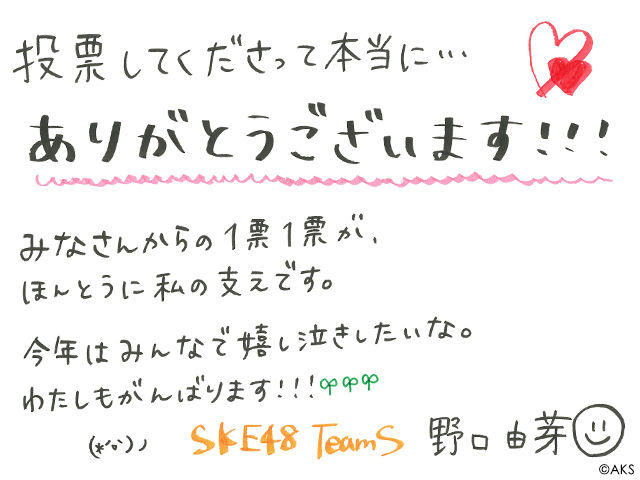 投票してくださって本当に…
ありがとうございます!!!
みなさんからの1票1票が、
ほんとうに私の支えです。
今年はみんなで嬉し泣きしたいな。
わたしもがんばります!!!
(*'-')ノ SKE48 TeamS 野口由芽
©AKS